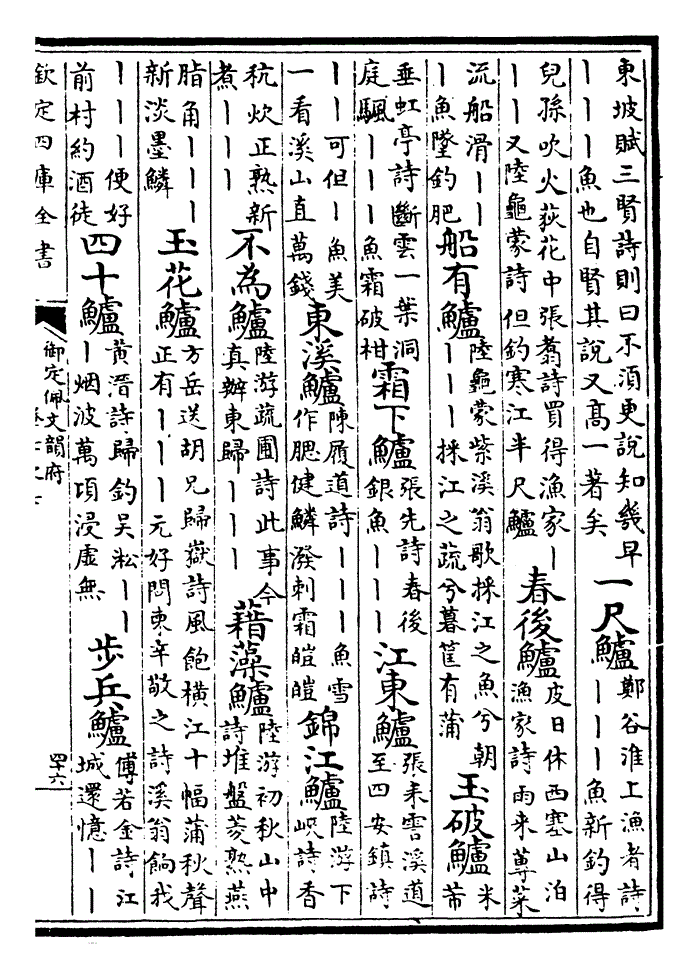 東坡賦三賢詩則曰不須更說知幾早
丨丨丨魚也自賢其說又髙一著矣
一尺鱸
鄭谷淮上漁者詩
丨丨丨魚新釣得
兒孫吹火荻花中張翥詩買得漁家丨
丨丨又陸龜蒙詩但釣寒江半尺鱸
春後鱸
皮日休西塞山泊
漁家詩雨来蓴菜
流船滑丨丨
丨魚墮釣肥
船有鱸
陸龜蒙紫溪翁歌採江之魚兮朝
丨丨丨採江之蔬兮暮筐有蒲
玉破鱸
米
芾
垂虹亭詩斷雲一葉洞
庭颿丨丨丨魚霜破柑
霜下鱸
張先詩春後
銀魚丨丨丨
江東鱸
張耒霅溪道
至四安鎮詩
丨丨可但丨魚美
一看溪山直萬錢
東溪鱸
陳履道詩丨丨丨魚雪
作腮健鱗潑剌霜皚皚
錦江鱸
陸游下
峽詩香
秔炊正熟新
煮丨丨丨
不為鱸
陸游疏圃詩此事今
真辦東歸丨丨丨
藉藻鱸
陸游初秋山中
詩堆盤菱熟燕
脂角丨丨丨
新淡墨鱗
玉花鱸
方岳送胡兄歸嶽詩風飽横江十幅蒲秋聲
正有丨丨丨元好問柬辛敬之詩溪翁餉我
丨丨丨便好
前村約酒徒
四十鱸
黄溍詩歸釣吳淞丨丨
丨烟波萬頃浸虚無
步兵鱸
傅若金詩江
城還憶丨丨
欽定四庫全書
御定佩文韻府